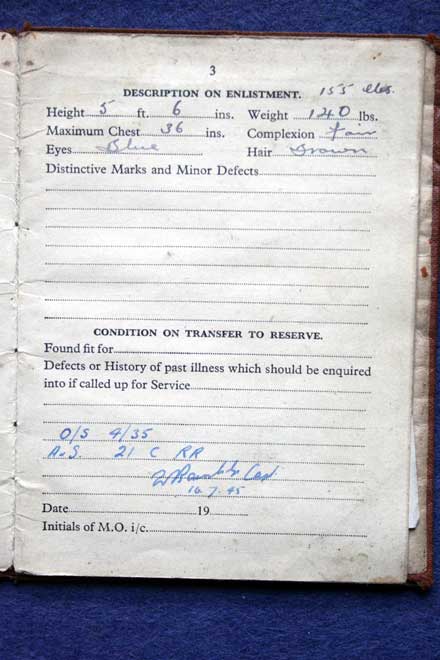 3
DESCRIPTION ON ENLISTMENT. 155 lbs.
Height 5 ft. 6 ins. Weight 140 lbs.
Maximum Chest 36 ins. Complexion Fair
Eyes Blue Hair Brown
Distinctive Marks and Minor Defects
CONDITION ON TRANSFER TO RESERVE.
Found fit for
Defects or History of past illness which should be enquired
into if called up for Service
O/S 9/35
A.S. 21 C RR
16.7.45
Date 19
Initials of M.O. i/c.